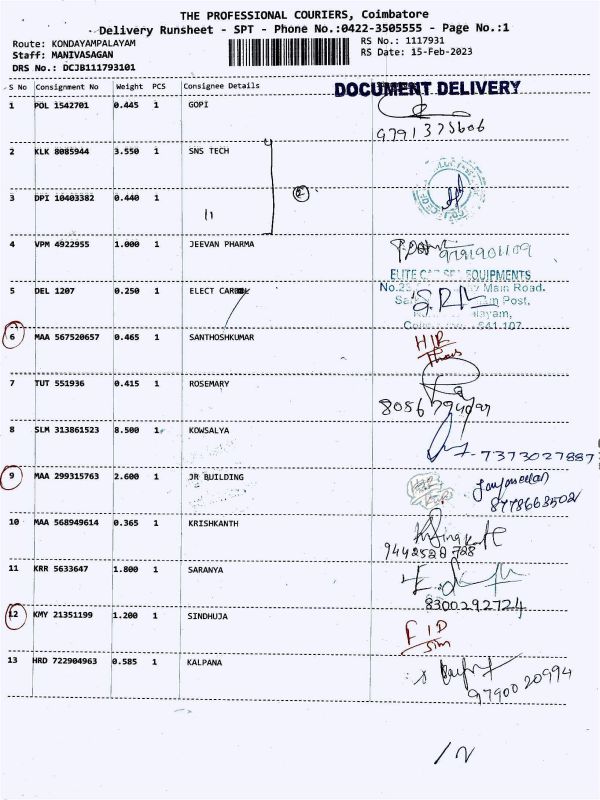 THE PROFESSIONAL COURIERS, Coimbatore
Delivery Runsheet - SPT - Phone No.:0422-3505555 - Page No.:1
Route: KONDAYAMPALAYAM
RS No.: 1117931
Staff: MANIVASAGAN
RS Date: 15-Feb-2023
DRS No.: DCJB111793101
S No Consignment No Weight PCS Consignee Details
DOCUMENT DELIVERY
1 POL 1542701 0.445 1 GOPI
9791375606
2 KLK 8085944 3.550 1 SNS TECH
2
3 DPI 10403382 0.440 1 11
4 VPM 4922955 1.000 1 JEEVAN PHARMA
9791901109
ELITE EQUIPMENTS
5 DEL 1207 0.250 1 ELECT
No.23 Main Road.
Post,
641 107
6 MAA 567520657 0.465 1 SANTHOSHKUMAR
7 TUT 551936 0.415 1 ROSEMARY
8 SLM 313861523 8.500 1 KOWSALYA
7373027887
9 MAA 299315763 2.600 1 JR BUILDING
8778663502
10 MAA 568949614 0.365 1 KRISHKANTH
9442528728
11 KRR 5633647 1.800 1 SARANYA
8300292724
12 KMY 21351199 1.200 1 SINDHUJA
13 HRD 722904963 0.585 1 KALPANA
9790020994